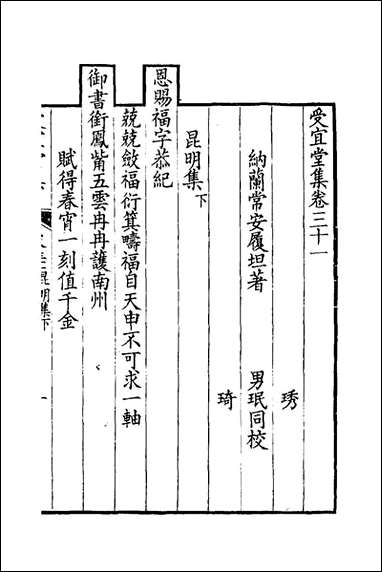 受宜堂集卷三十一
琇
納蘭常安履坦著 男珉同校
琦
昆明集下
恩賜福字恭紀
兢兢斂福衍箕疇福自天申不可求一軸
御書銜鳳觜五雲冉冉護南州
賦得春宵一刻值千金
昆明集下 一